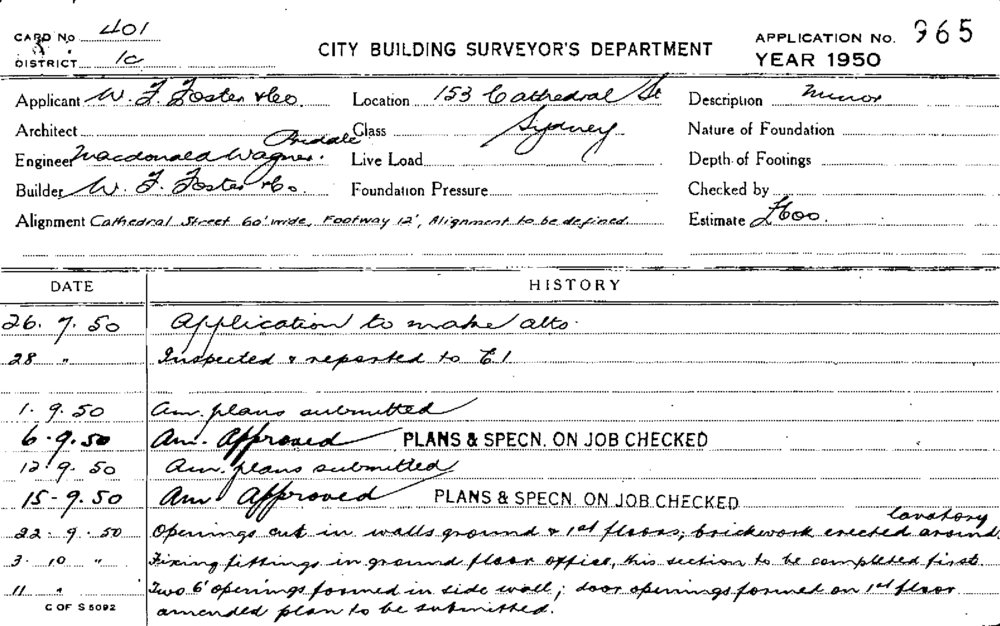 CARD No 401
DISTRICT 1c
CITY BUILDING SURVEYOR'S DEPARTMENT
APPLICATION No. 965
YEAR 1950
Applicant W. F. Foster & Co. Location 153 Cathedral St Description Minor
Architect Class Sydney Nature of Foundation
Engineer Macdonald Wagner. Priddle Live Load Depth of Footings
Builder W. F. Foster & Co. Foundation Pressure Checked by
Alignment Cathedral Street 60' wide, Footway 12', Alignment to be defined. Estimate £600.
DATE HISTORY
26. 7. 50 Application to make alts.
28 " Inspected & reported to E1
1. 9. 50 Am. plans submitted
6-9.50 Am. Approved PLANS & SPECN. ON JOB CHECKED
12. 9. 50 Am. plans submitted
15-9.50 Am Approved PLANS & SPECN. ON JOB CHECKED
22. 9. 50 Openings cut in walls ground & 1st floors, brickwork erected around lavatory
3. 10 " Fixing fittings in ground floor office, this section to be completed first
11 " Two 6' openings formed in side wall; door openings formed on 1st floor
C OF S 5092 amended plan to be submitted.